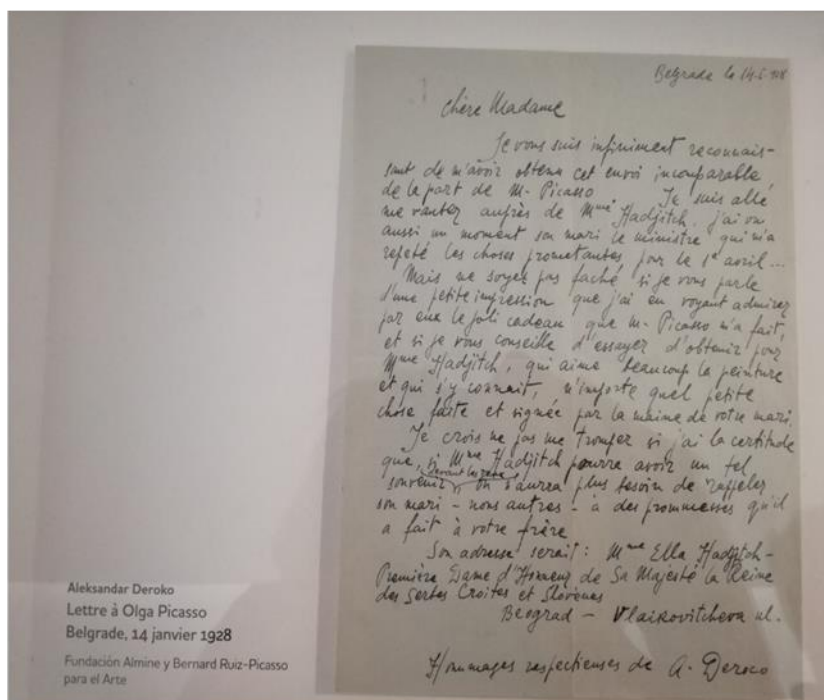 Belgrade le 14-I-928
chère Madame
Je vous suis infiniment reconnais-
sant de m'avoir obtenu cet envoi incomparable
de la part de M- Picasso Je suis allé
me vanter auprès de Mme Hadjitch, j'ai vu
aussi un moment son mari le ministre qui m'a
repeté les choses prometantes pour le 1e avril...
Mais ne soyez pas faché si je vous parle
d'une petite impression que j'ai en voyant admirer
par eux le joli cadeau que M- Picasso m'a fait,
et si je vous conseille d'essayer d'obtenir pour
Mme Hadjitch, qui aime beaucoup la peinture
et qui s'y connait, n'importe quel petite
chose faite et signée par la maine de votre mari.
Je crois ne pas me tromper si j'ai la certitude
que, si Mme Hadjitch pourra avoir un tel
souvenir devant les yeux on n'aura plus besoin de rappeler
son mari - nous autres - à des prommesses qu'il
a fait à votre frère
Son adresse serait: Mme Ella Hadjitch-
Première Dame d'Honneur de Sa Majesté la Reine
des Serbes Croites et Slovenes
Beograd - Vlaikovitcheva ul.
Hommages respectieuses de A. Deroco
Aleksandar Deroko
Lettre à Olga Picasso
Belgrade, 14 janvier 1928
Fundación Almine y Bernard Ruiz-Picasso
para el Arte